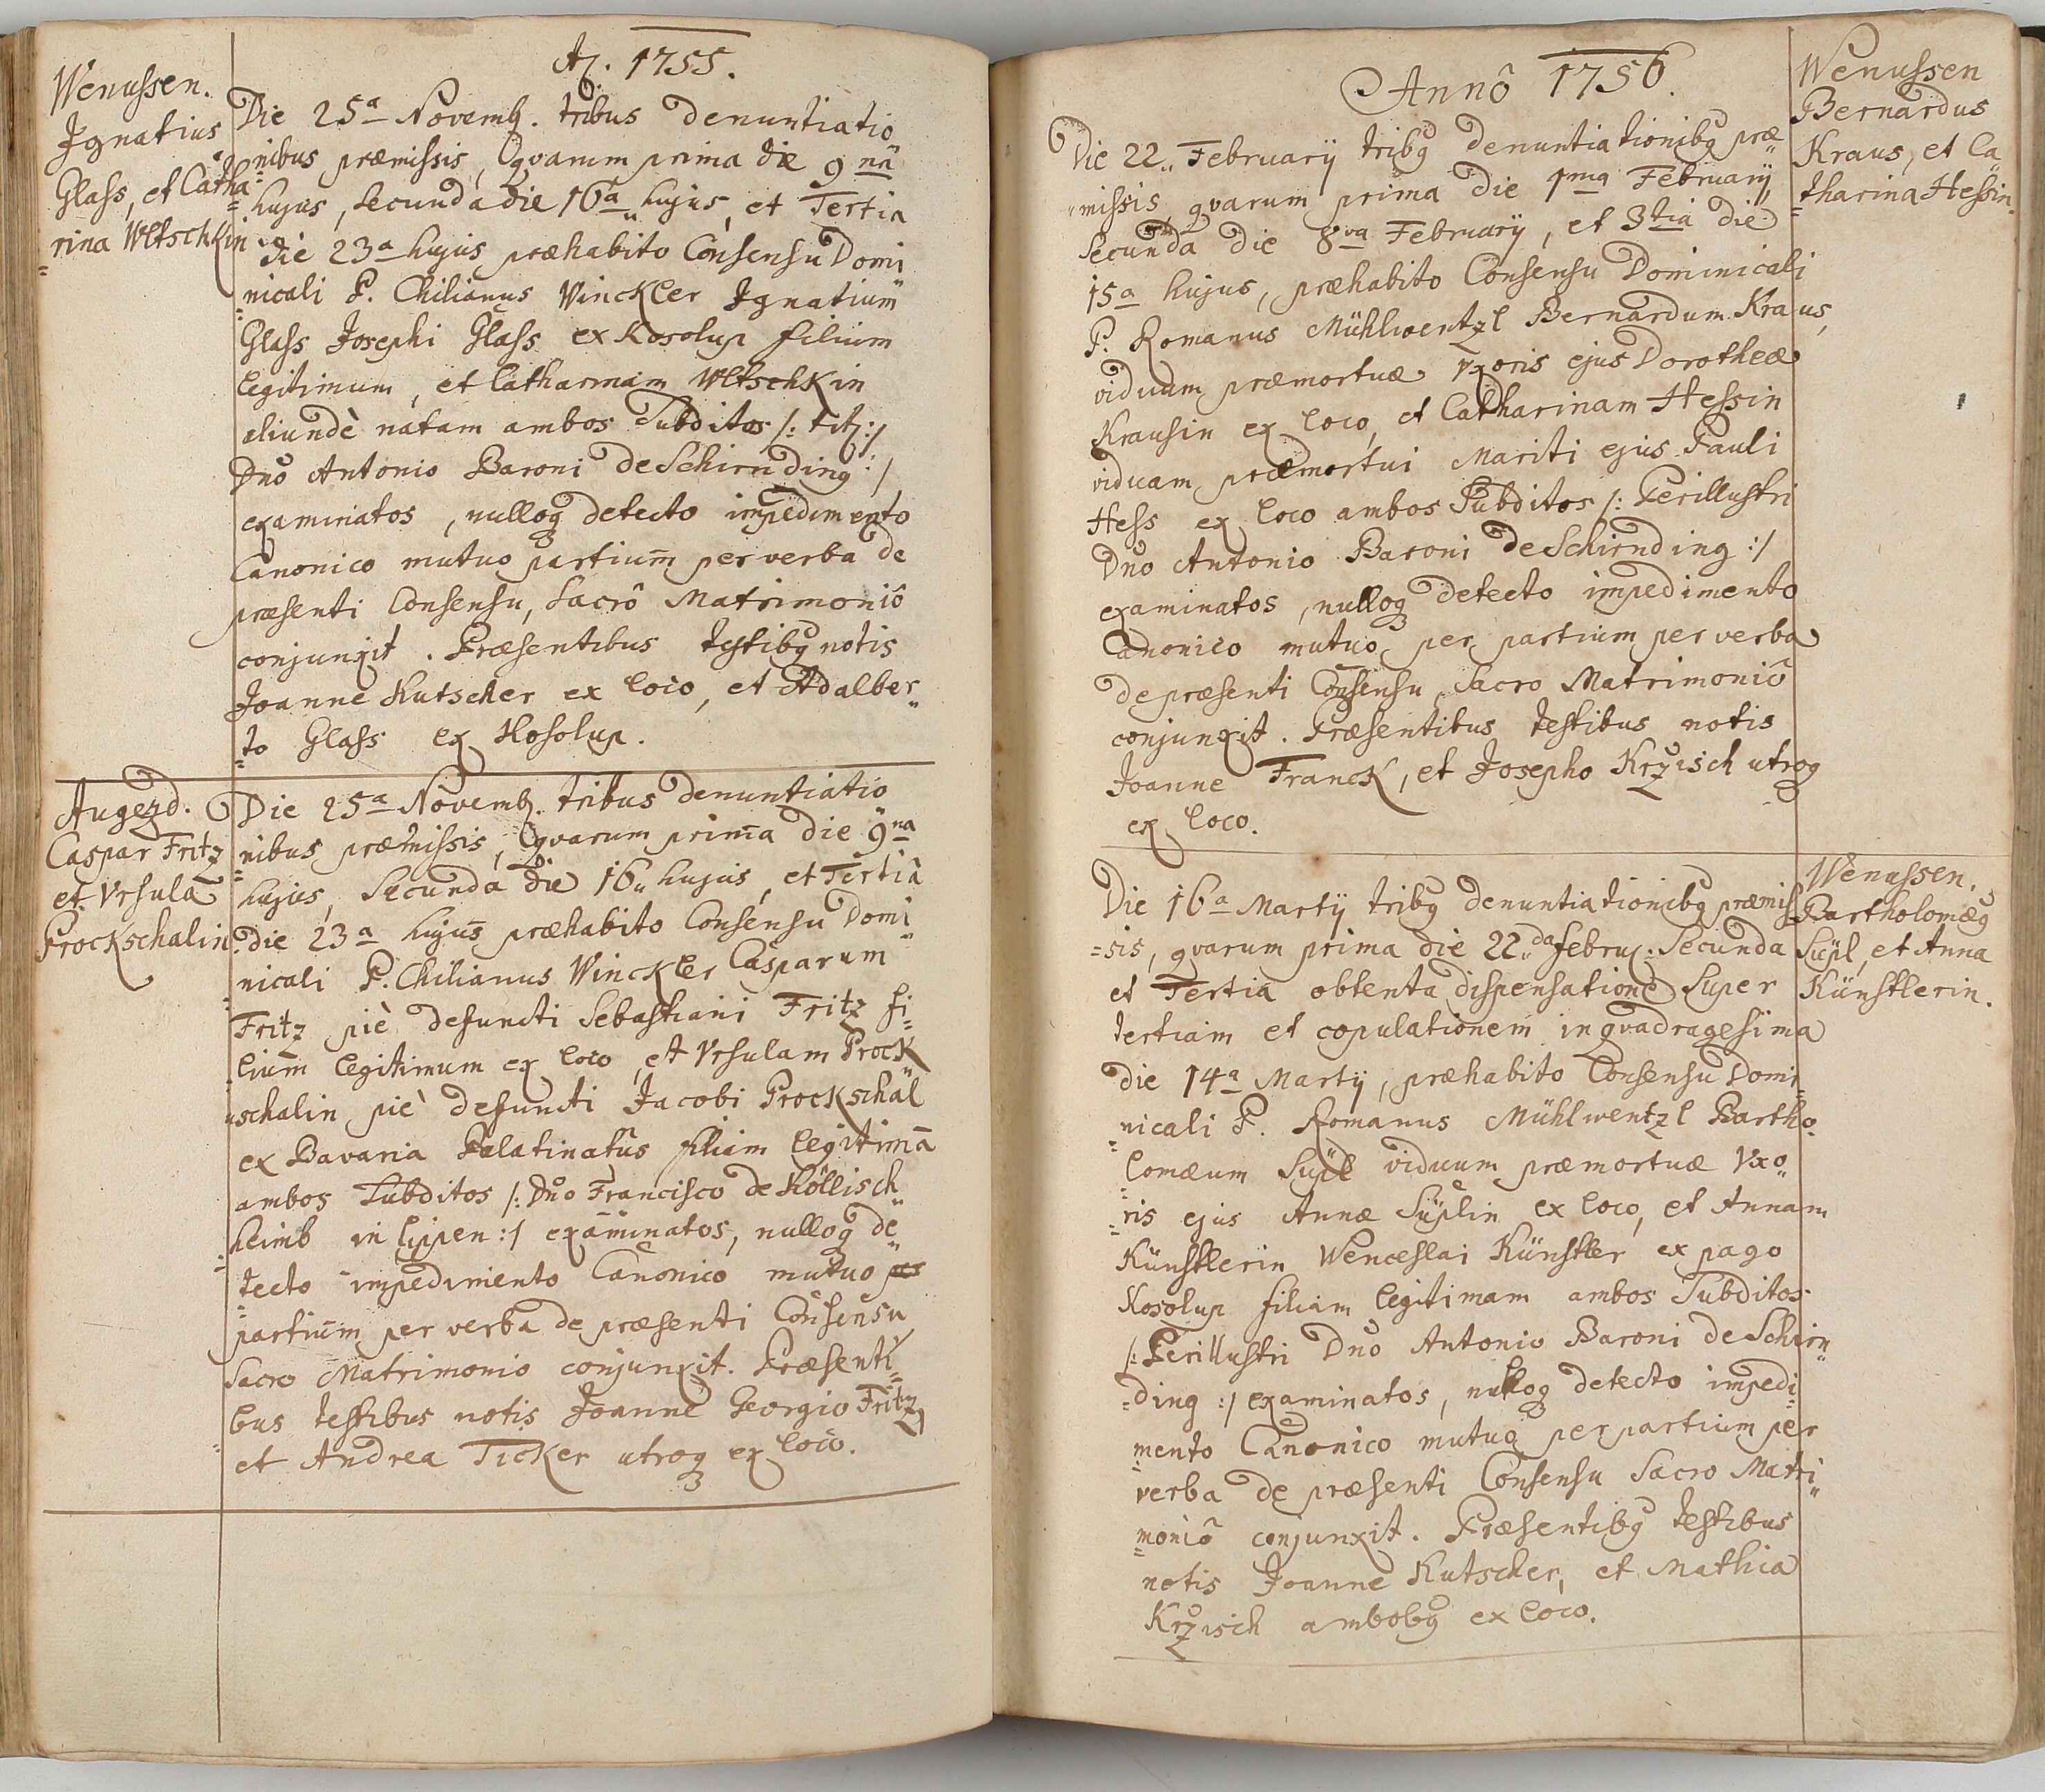 Aõ. 1755.
Wenussen.
Ignatius
Glass, et Catha=
=rina Wltschkin
Die 25ᵃ Novemb. tribus denuntiatio
=nibus præmissis, qvarum prima die 9nâ
hujus, Secunda die 16ᵃ hujus, et Tertia
die 23ᵃ hujus præhabito Consensu Domi
=nicali P. Chilianus Winckler Ignatium
Glass Josephi Glass ex Kosolup filium
legitimum, et Catharinam Wltschkin
aliundè natam ambos Subditos /: tit:/
Dnō Antonio Baroni de Schirnding :/
examinatos, nulloq detecto impedimento
Canonico mutuo partium per verba de
præsenti Consensu, Sacrô Matrimoniô
conjunxit. Præsentibus testibg notis
Joanne Kutscher ex loco, et Adalber=
=to Glass ex Kosolup.
Augezd.
Caspar Fritz
et Vrsula
Prockschalin
Die 25ᵃ Novemb. tribus denuntiatio
=nibus præmissis, qvarum prima die 9na
hujus, Secunda die 16 hujus, et Tertiâ
die 23ᵃ hujus præhabito Consensu Domi=
nicali P. Chilianus Winckler Casparum
Fritz piè defuncti Sebastiani Fritz fi=
lium legitimum ex loco, et Vrsulam Prock
=schalin piè defuncti Jacobi Prockschal
ex Bavaria Palatinatûs filiam legitimā
ambos Subditos /: Dnō Francisco de Köllisch
heimb in lippen :/ examinatos, nulloq de=
tecto impedimento Canonico mutuo per
partium per verba de præsenti Consensu
Sacro Matrimonio conjunxit. Præsenti=
bus testibus notis Joanne Georgio Fritz
et Andrea Ticker utroq ex loco.
Annô 1756.
Wenussen
Bernardus
Kraus, et Ca
=tharina Hessin.
Die 22 February tribg denuntiationibg præ=
=missis, qvarum prima die 1ma February,
Secunda die 8va February, et 3tia die
15ᵃ hujus, præhabito Consensu Dominicali
P. Romanus Mühlwentzl Bernardum Kraus,
viduum præmortuæ Vxoris ejus Dorotheæ
Krausin ex loco, et Catharinam Hessin
viduam præmortui Mariti ejus Pauli
Hess ex loco ambos Subditos /: Perillustri
Dnō Antonio Baroni de Schirnding :/
examinatos, nulloq detecto impedimento
Canonico mutuo per partium per verba
de præsenti Consensu Sacro Matrimoniô
conjunxit. Præsentibus testibus notis
Joanne Franck, et Josepho Krzisch utroq
ex loco.
Wenussen.
Bartholomæg
Süpl, et Anna
Künstlerin.
Die 16ᵃ Marty tribg denuntiationibg præmis
=sis, qvarum prima die 22da Febru: Secunda
et Tertia obtenta dispensatione Super
tertiam et copulationem in qvadragesima
die 14ᵃ Marty, præhabito Consensu Domi=
nicali P. Romanus Mühlwentzl Bartho=
=lomæum Süpl viduum præmortuæ Vxo=
=ris ejus Annæ Süplin ex loco, et Annam
Künstlerin Wenceslai Künstler ex pago
Kosolup filiam legitimam ambos Subditos
/: Perillustri Dnō Antonio Baroni de Schirn=
=ding :/ examinatos, nulloq detecto impedi=
mento Canonico mutuo per partium per
verba de præsenti Consensu Sacro Matri=
=moniô conjunxit. Præsentibg testibus
notis Joanne Kutscher, et Mathia
Krzisch ambobg ex loco.